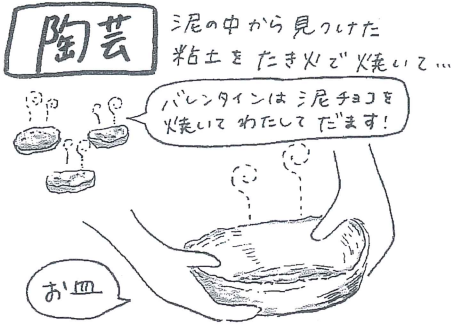 陶芸
泥の中から見つけた
粘土をたき火で焼いて…
バレンタインは泥チョコを
焼いてわたしてだます!
お皿